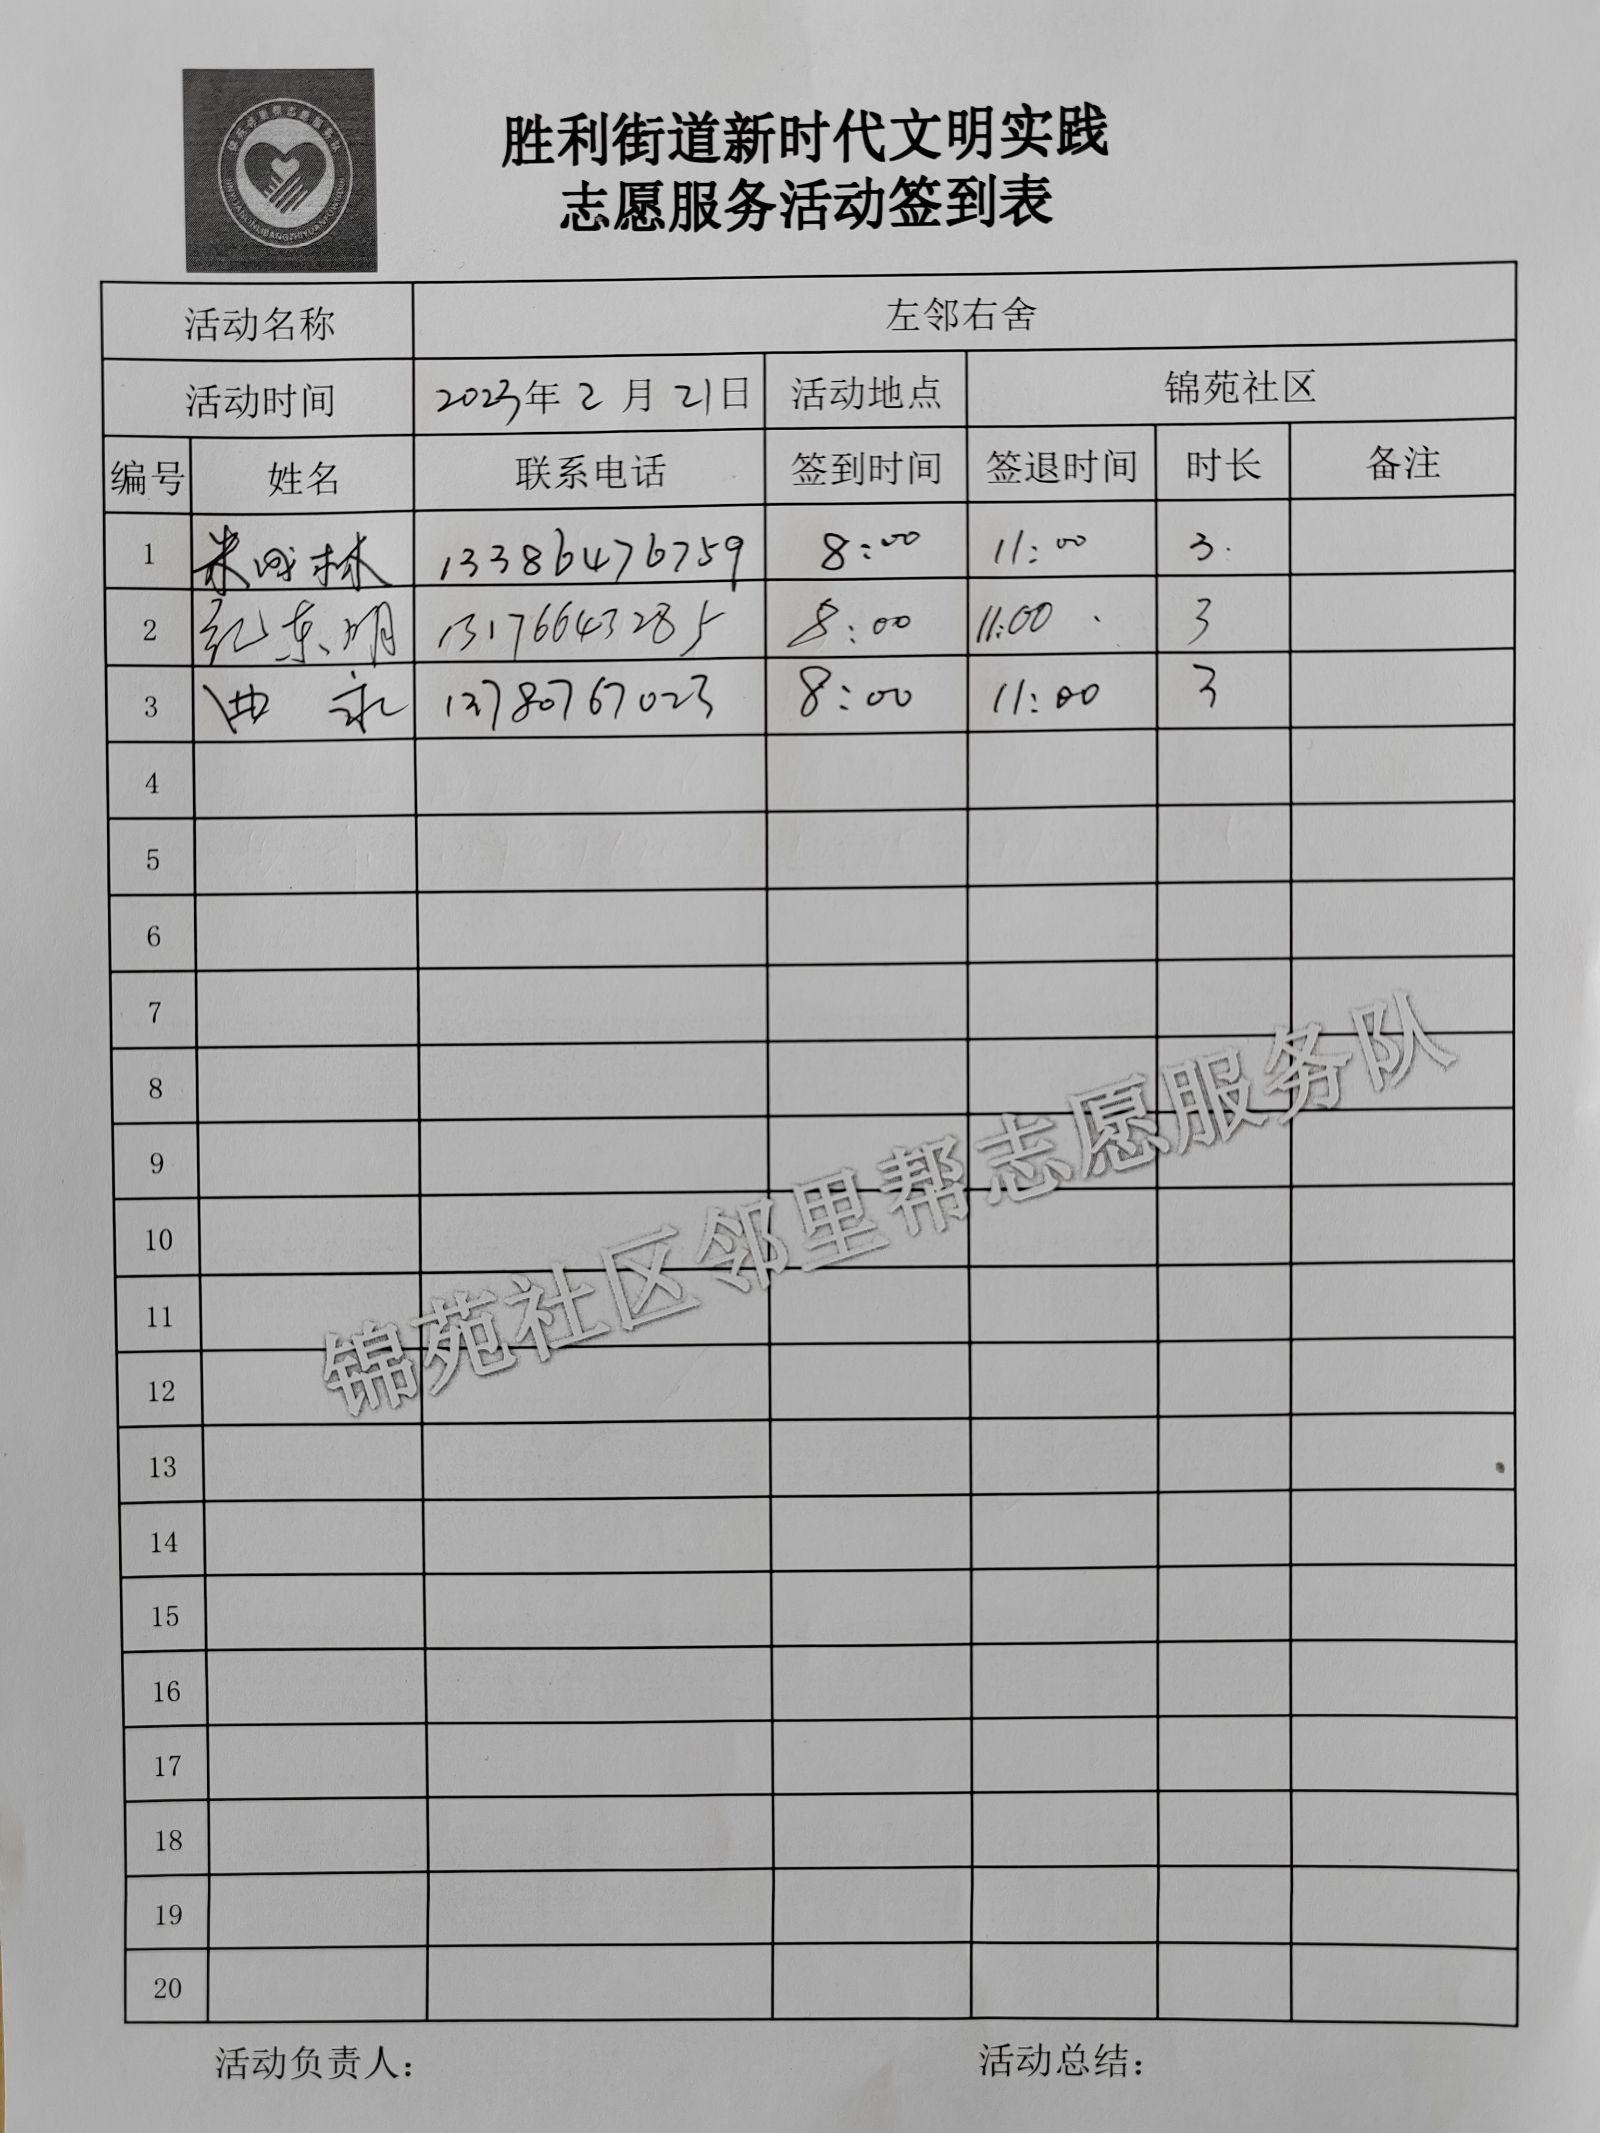 胜利街道新时代文明实践
志愿服务活动签到表
活动名称 左邻右舍
活动时间 2023年2月21日 活动地点 锦苑社区
编号 姓名 联系电话 签到时间 签退时间 时长 备注
1 林 13386476759 8:00 11:00 3
2 纪东明 13176643285 8:00 11:00 3
3 曲永 13780767023 8:00 11:00 3
4
5
6
7
8
9
10
11
12
13
14
15
16
17
18
19
20
锦苑社区邻里帮志愿服务队
活动负责人： 活动总结：